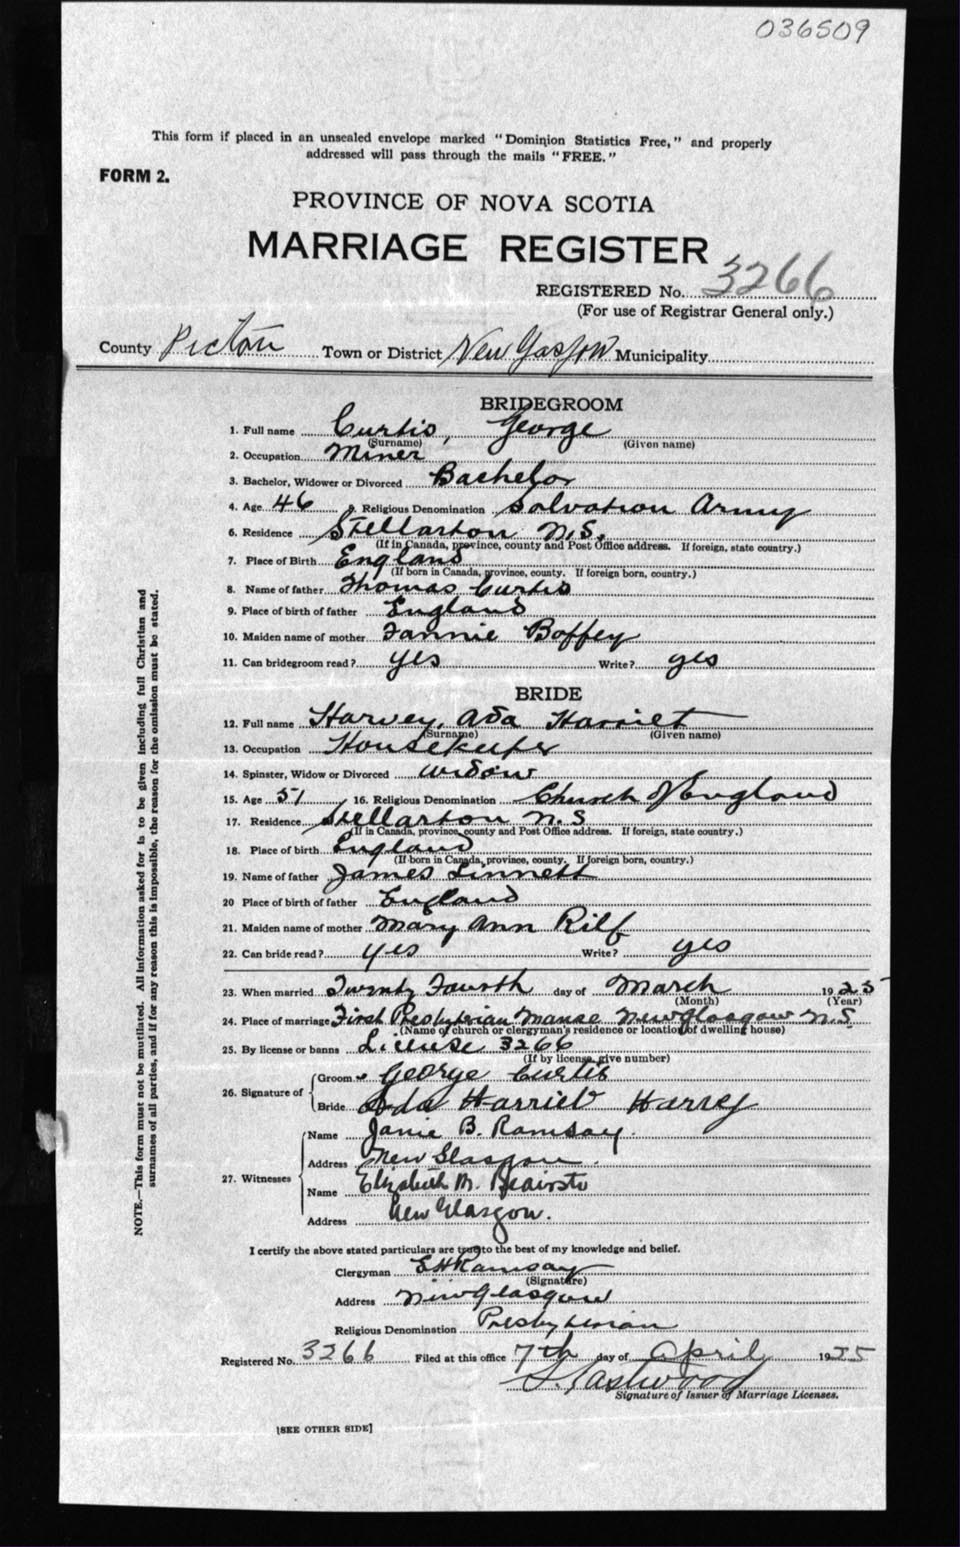 036509
This form if placed in an unsealed envelope marked "Dominion Statistics Free," and properly
addressed will pass through the mails "FREE."
FORM 2.
PROVINCE OF NOVA SCOTIA
MARRIAGE REGISTER
REGISTERED No. 3266
(For use of Registrar General only.)
County Pictou Town or District New Glasgow Municipality
BRIDEGROOM
1. Full name Curtis, George
(Surname) (Given name)
2. Occupation Miner
3. Bachelor, Widower or Divorced Bachelor
4. Age 46 5. Religious Denomination Salvation Army
6. Residence Stellarton N.S.
(If in Canada, province, county and Post Office address. If foreign, state country.)
7. Place of Birth England
(If born in Canada, province, county. If foreign born, country.)
8. Name of father Thomas Curtis
9. Place of birth of father England
10. Maiden name of mother Fannie Boffey
11. Can bridegroom read? yes Write? yes
BRIDE
12. Full name Harvey, Ada Harriet
(Surname) (Given name)
13. Occupation Housekeeper
14. Spinster, Widow or Divorced widow
15. Age 51 16. Religious Denomination Church of England
17. Residence Stellarton N.S
(If in Canada, province, county and Post Office address. If foreign, state country.)
18. Place of birth England
(If born in Canada, province, county. If foreign born, country.)
19. Name of father James Linnett
20 Place of birth of father England
21. Maiden name of mother Mary Ann Rilf
22. Can bride read? yes Write? yes
23. When married Twenty Fourth day of March 1925
(Month) (Year)
24. Place of marriage First Presbyterian Manse New Glasgow N.S
(Name of church or clergyman's residence or location of dwelling house)
25. By license or banns License 3266
(If by license, give number)
26. Signature of Groom George Curtis
Bride Ada Harriet Harvey
27. Witnesses Name Janie B. Ramsay.
Address New Glasgow.
Name Elizabeth M. Beairsto
Address New Glasgow.
I certify the above stated particulars are true to the best of my knowledge and belief.
Clergyman E H Ramsay
(Signature)
Address New Glasgow
Religious Denomination Presbyterian
Registered No. 3266 Filed at this office 7th day of April 1925
Eastwood
Signature of Issuer of Marriage Licenses.
[SEE OTHER SIDE]
NOTE.—This form must not be mutilated. All information asked for is to be given including full Christian and
surnames of all parties, and if for any reason this is impossible, the reason for the omission must be stated.